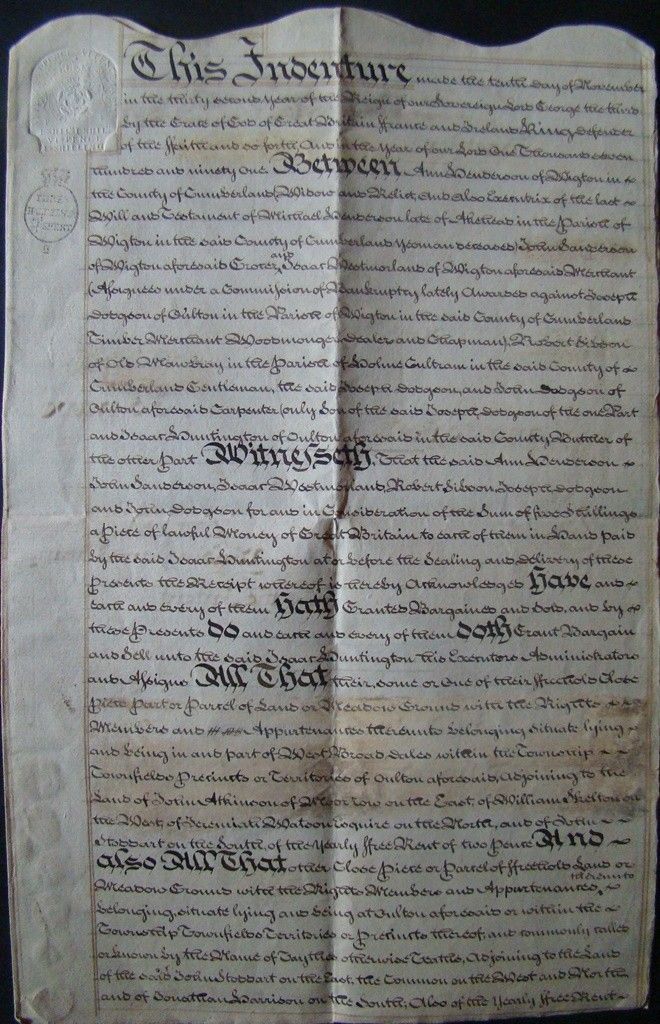 This Indenture made the tenth day of November
in the thirty second Year of the Reign of our Sovereign Lord George the third
by the Grace of God of Great Britain France and Ireland King, defender
of the Faith and so forth, And in the Year of our Lord One Thousand seven
hundred and ninety one. Between Ann Henderson of Wigton in
the County of Cumberland, Widow and Relict, and also Executrix of the last
Will and Testament of Michael Henderson late of Akehead in the Parish of
Wigton in the said County of Cumberland Yeoman deceased, John Sanderson
of Wigton aforesaid Grocer, and Isaac Westmorland of Wigton aforesaid Merchant
(Assignees under a Commission of Bankruptcy lately Awarded against Joseph
Dodgson of Oulton in the Parish of Wigton in the said County of Cumberland
Timber Merchant Woodmonger dealer and Chapman), Robert Sibson
of Old Mawbray in the Parish of Holme Cultram in the said County of
Cumberland Gentleman, the said Joseph dodgson, and John Dodgson of
Oulton aforesaid Carpenter (only Son of the said Joseph dodgson of the one Part
and Isaac Huntington of Oulton aforesaid in the said County Butcher of
the other Part Witnesseth, That the said Ann Henderson
John Sanderson, Isaac Westmorland, Robert Sibson, Joseph dodgson
and John dodgson for and in Consideration of the Sum of five shillings
a piece of lawful Money of Great Britain to each of them in Hand paid
by the said Isaac Huntington at or before the Sealing and delivery of these
Presents the Receipt whereof is hereby Acknowledged Have and
each and every of them Hath Granted Bargained and Sold, and by
these Presents do and each and every of them doth Grant Bargain
and Sell unto the said Isaac Huntington His Executors Administrators
and Assigns All That their, some or One of their Freehold Close
Piece Part or Parcel of Land or Meadow Ground with the Rights
Members and Appurtenances thereunto belonging, situate lying
and being in and part of West Broad dales within the Township
Townfields Precincts or Territories of Oulton aforesaid, adjoining to the
Land of John Atkinson of Moor row on the East, of William Skelton on
the West, of Jeremiah Watson Esquire on the North, and of John
Stoddart on the South, of the Yearly ffree Rent of two Pence And
also All That other Close Piece or Parcel of ffreehold Land or
Meadow Ground with the Rights Members and Appurtenances thereunto
belonging, situate lying and being at Oulton aforesaid or within the
Township Townfields Territories or Precincts thereof, and commonly called
or known by the Name of Taythes otherwise Teaths, Adjoining to the Land
of the said John Stoddart on the East, the Common on the West and North
and of Jonathan Harrison on the South; Also of the Yearly ffree Rent